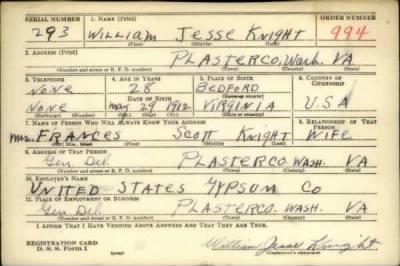 SERIAL NUMBER 1. NAME (Print) ORDER NUMBER
293 WILLIAM JESSE KNIGHT 994
(First) (Middle) (Last)
2. ADDRESS (Print)
PLASTERCO, Wash. VA.
(Number and street or R. F. D. number) (Town) (County) (State)
3. TELEPHONE 4. AGE IN YEARS 5. PLACE OF BIRTH 6. COUNTRY OF CITIZENSHIP
NONE 28 BEDFORD
DATE OF BIRTH (Town or county)
NONE May 29 1912 VIRGINIA U.S.A
(Exchange) (Number) (Mo.) (Day) (Yr.) (State or country)
7. NAME OF PERSON WHO WILL ALWAYS KNOW YOUR ADDRESS 8. RELATIONSHIP OF THAT PERSON
Mrs. FRANCES SCOTT KNIGHT WIFE
(Mr., Mrs., Miss) (First) (Middle) (Last)
9. ADDRESS OF THAT PERSON
Gen. Del. PLASTERCO. WASH. VA
(Number and street or R. F. D. number) (Town) (County) (State)
10. EMPLOYER'S NAME
UNITED STATES GYPSUM CO
11. PLACE OF EMPLOYMENT OR BUSINESS
Gen Del. PLASTERCO. WASH. VA
(Number and street or R. F. D. number) (Town) (County) (State)
I AFFIRM THAT I HAVE VERIFIED ABOVE ANSWERS AND THAT THEY ARE TRUE.
REGISTRATION CARD
D. S. S. Form 1 (over) William Jesse Knight
(Registrant's signature)